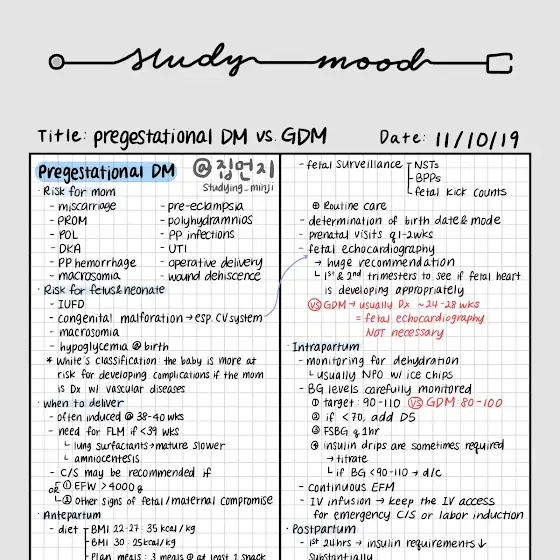 study mood
Title: pregestational DM vs. GDM
Date: 11/10/19
Pregestational DM
@집먼지
studying_minji
· Risk for mom
- miscarriage
- PROM
- POL
- DKA
- PP hemorrhage
- macrosomia
- pre-eclampsia
- polyhydramnios
- PP infections
- UTI
- operative delivery
- wound dehiscence
· Risk for fetus & neonate
- IUFD
- congenital malforation → esp. CV system
- macrosomia
- hypoglycemia @ birth
* White's classification: the baby is more at
risk for developing complications if the mom
is Dx w/ vascular diseases
· when to deliver
- often induced @ 38-40 wks
- need for FLM if <39 wks
└ lung surfactants → mature slower
└ amniocentesis
- C/S may be recommended if
① EFW > 4000 g
OR
② other signs of fetal/maternal compromise
· Antepartum
- diet
- BMI 22-27: 35 kcal/kg
- BMI 30: 25 kcal/kg
- Plan meals: 3 meals @ at least 1 snack
- fetal surveillance
- NSTs
- BPPs
- fetal kick counts
⊕ Routine care
- determination of birth date & mode
- prenatal visits q 1-2wks
- fetal echocardiography
→ huge recommendation
└ 1st & 2nd trimesters to see if fetal heart
is developing appropriately
VS GDM → usually Dx ~24-28 wks
= fetal echocardiography
NOT necessary
· Intrapartum
- monitoring for dehydration
└ usually NPO w/ ice chips
- BG levels carefully monitored
① target: 90-110 VS GDM: 80-100
② if <70, add D5
③ FSBG q 1hr
④ insulin drips are sometimes required
→ titrate
└ if BG <90-110 → d/c
- continuous EFM
- IV infusion → keep the IV access
for emergency C/S or labor induction
· Postpartum
- 1st 24hrs → insulin requirements ↓
substantially